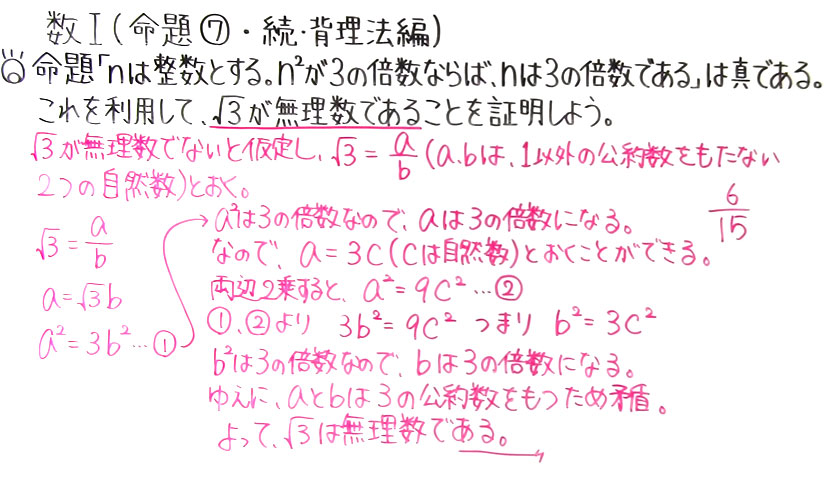 数Ⅰ(命題⑦・続・背理法編)
◎命題「nは整数とする。n²が3の倍数ならば、nは3の倍数である」は真である。
これを利用して、√3が無理数であることを証明しよう。
√3が無理数でないと仮定し、√3 = a/b (a.bは、1以外の公約数をもたない
2つの自然数)とおく。
√3 = a/b
a = √3b
a² = 3b² … ①
a²は3の倍数なので、aは3の倍数になる。
なので、a = 3c (cは自然数)とおくことができる。
両辺2乗すると、a² = 9c² … ②
①、②より 3b² = 9c² つまり b² = 3c²
b²は3の倍数なので、bは3の倍数になる。
ゆえに、aとbは3の公約数をもつため矛盾。
よって、√3は無理数である。
6/15